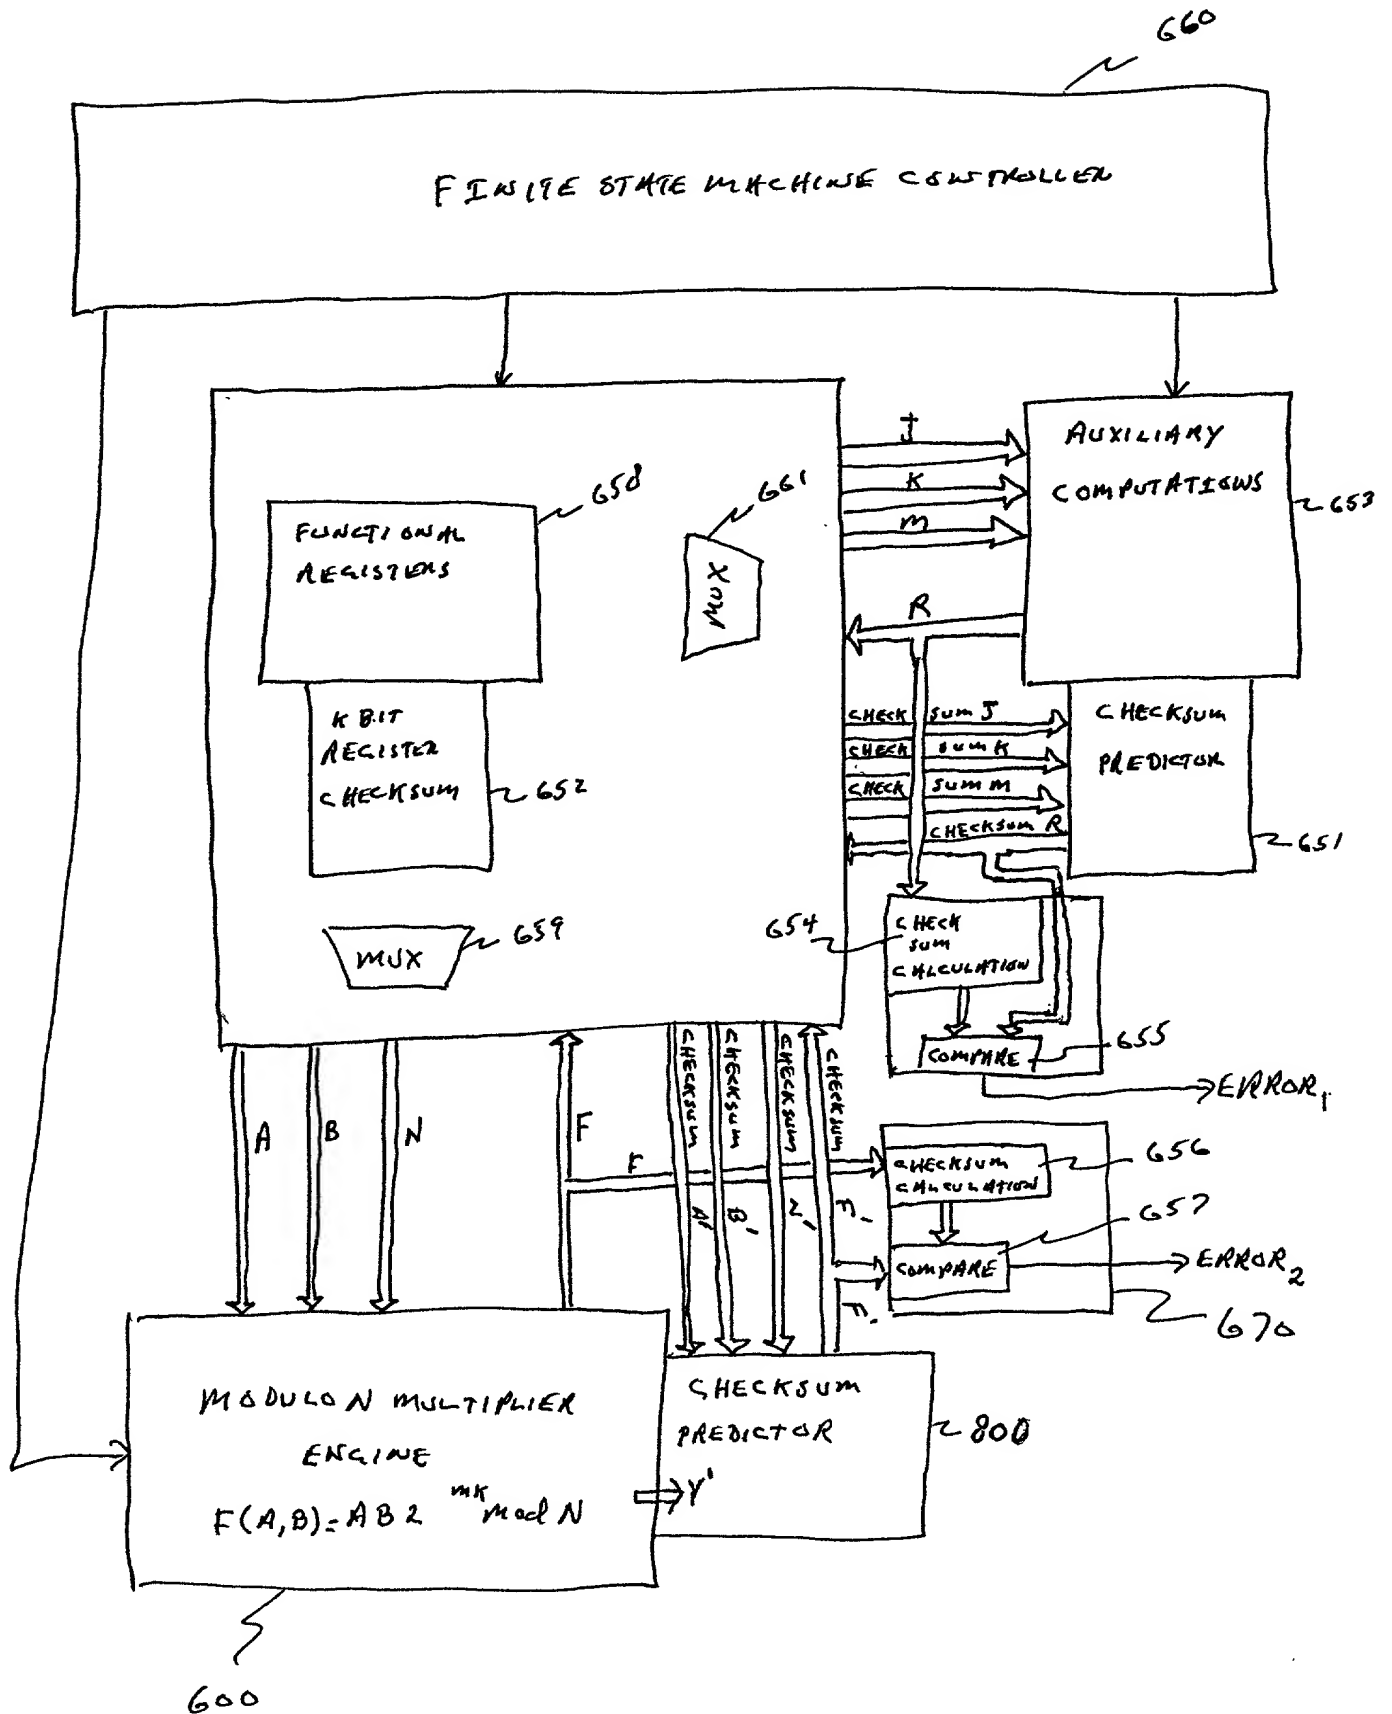 660
FINITE STATE MACHINE CONTROLLER
J
AUXILIARY
COMPUTATIONS
K
M
653
658
661
FUNCTIONAL
REGISTERS
MUX
R
K BIT
REGISTER
CHECKSUM
652
CHECK SUM J
CHECK SUM K
CHECK SUM M
CHECKSUM R
CHECKSUM
PREDICTOR
651
MUX
659
654
CHECK
SUM
CALCULATION
COMPARE
655
ERROR1
A
B
N
F
F
CHECKSUM A'
CHECKSUM B'
CHECKSUM N'
CHECKSUM F'
F'
CHECKSUM
CALCULATION
656
657
COMPARE
ERROR2
670
MODULO N MULTIPLIER
ENGINE
F(A,B)=AB2^mk mod N
Y'
CHECKSUM
PREDICTOR
800
600